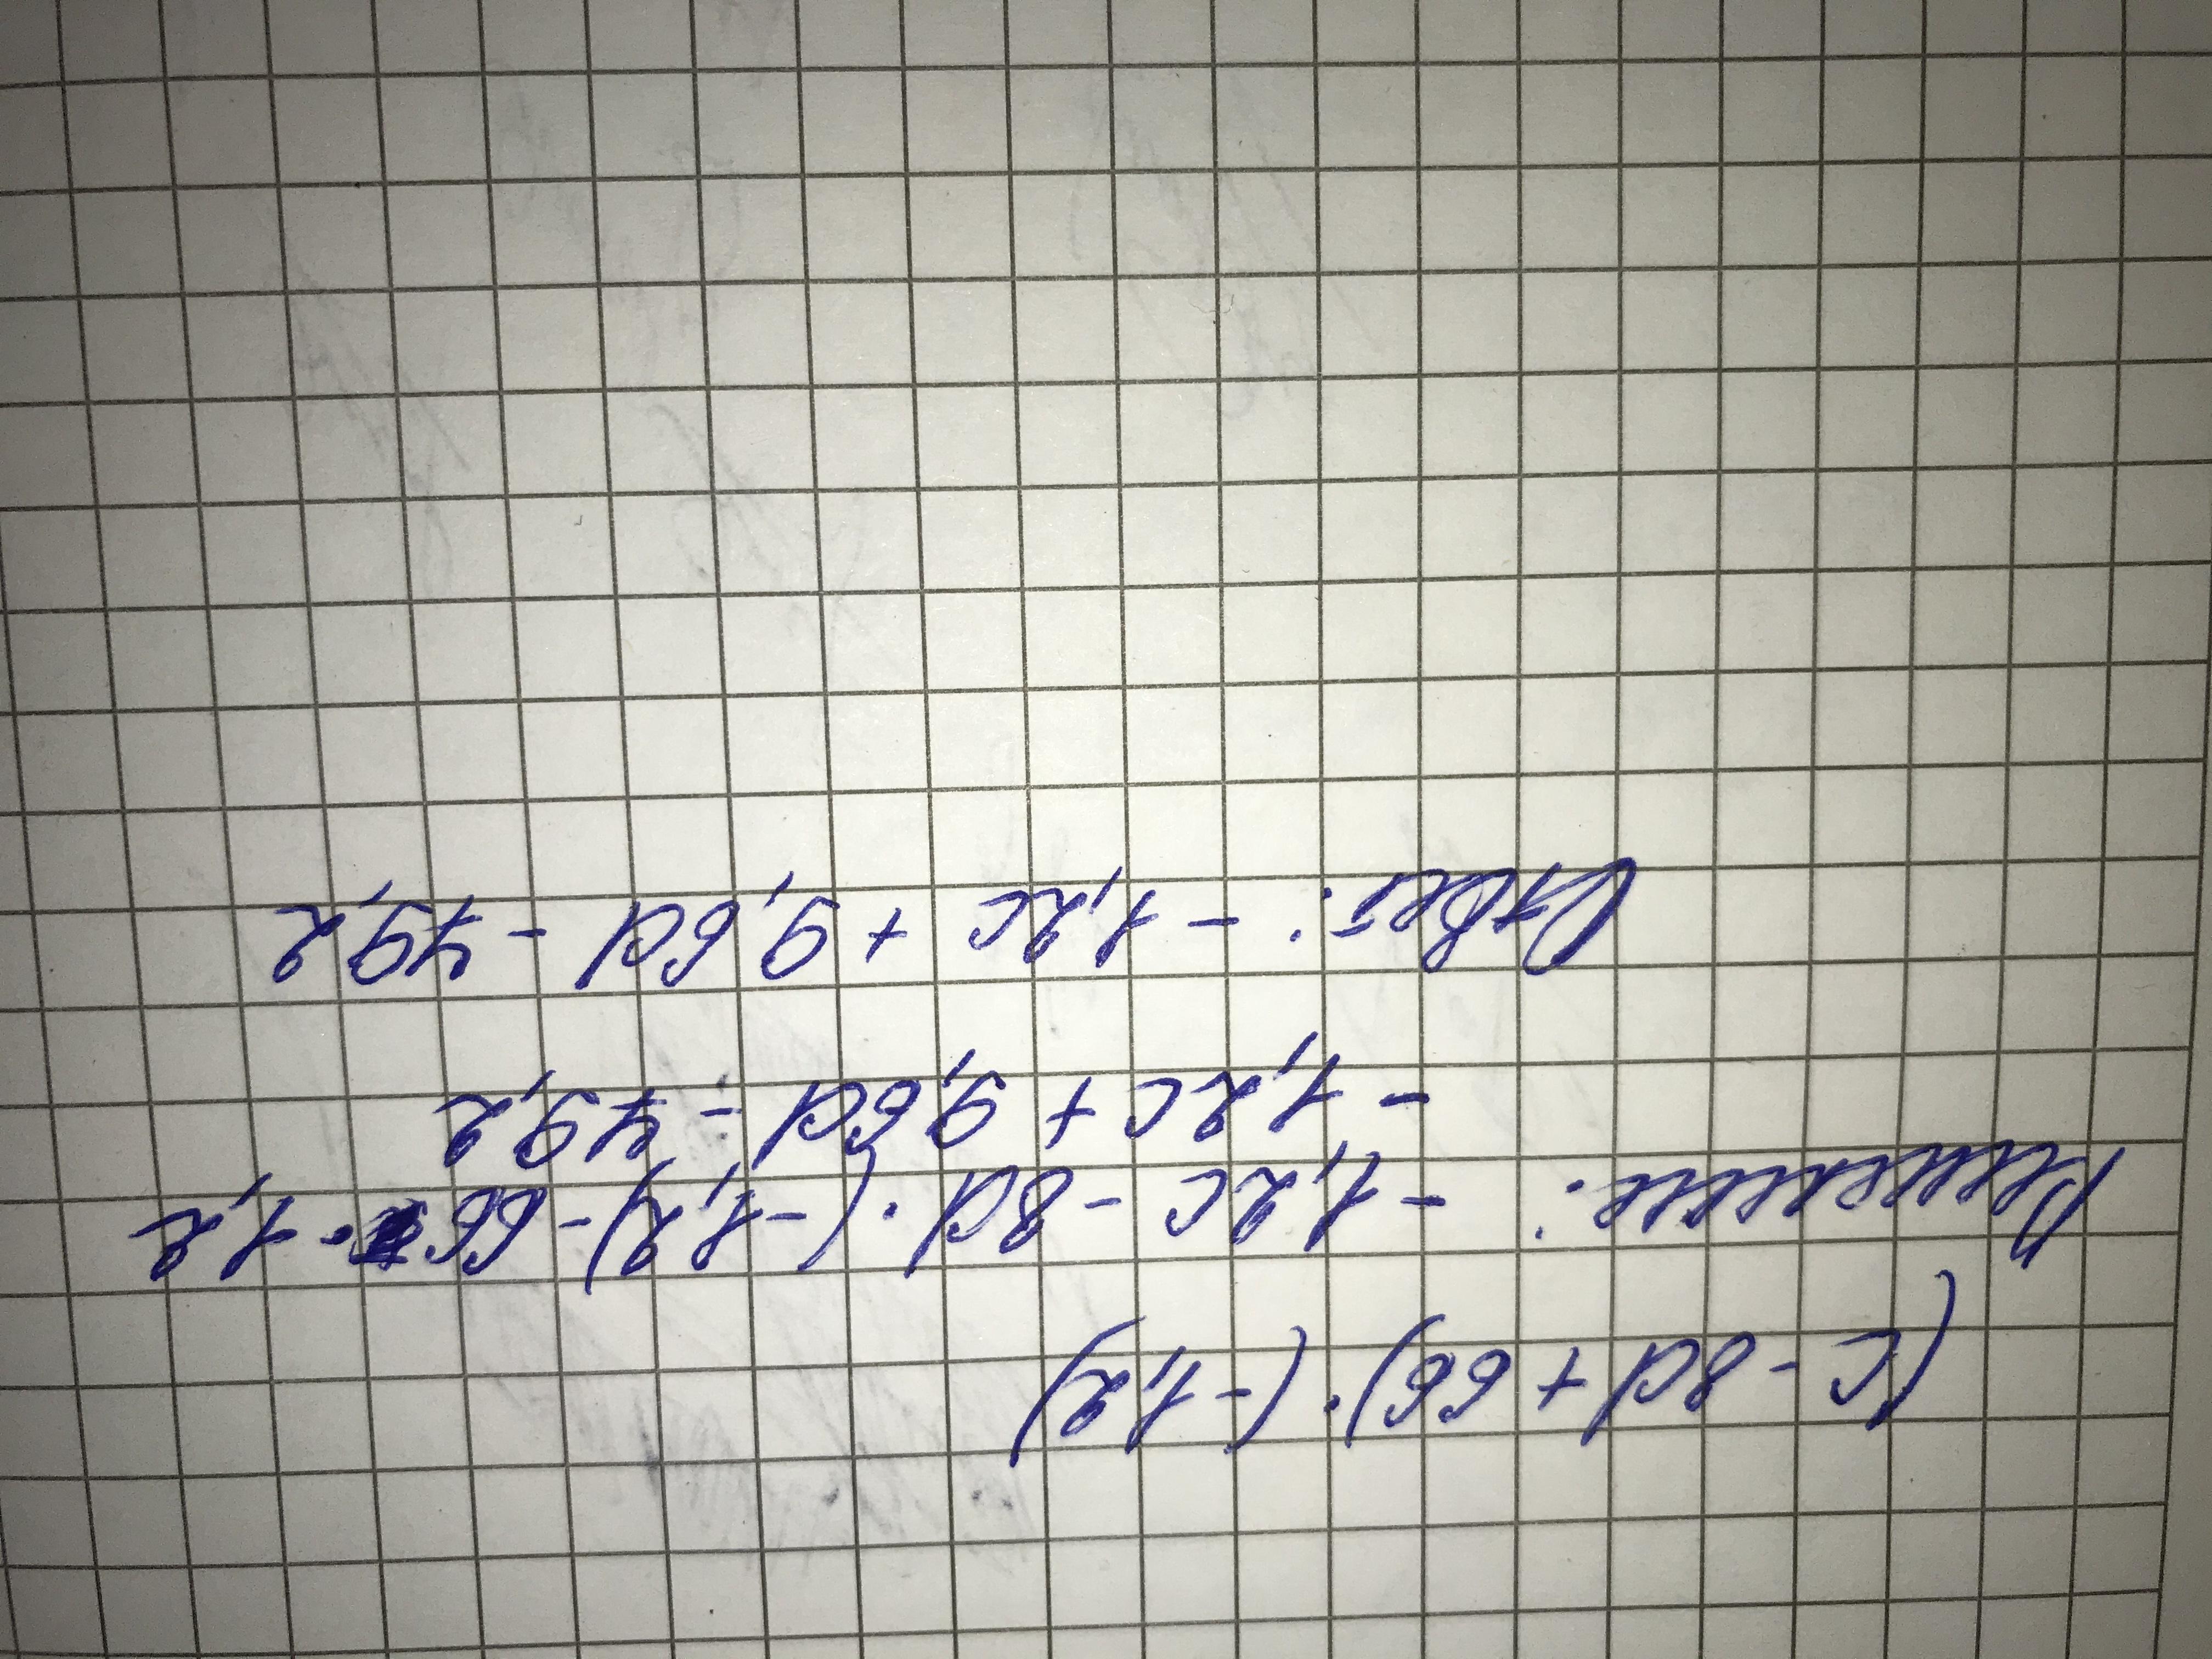 (c - 8d + 66) · (-1,2)
Решение: - 1,2c - 8d · (-1,2) - 66 · 1,2
- 1,2c + 9,6d - 79,2
Ответ: - 1,2c + 9,6d - 79,2